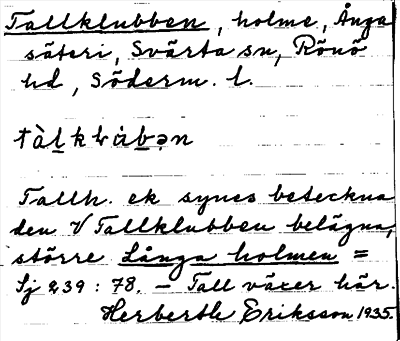 Tallklubben, holme, Ånga
säteri, Svärta sn, Rönö
hd, Söderm. l.
Tallh. ek synes beteckna
den V Tallklubben belägna,
större Långa holmen =
Sj 239 : 78. – Tall växer här.
Herberth Eriksson 1935.